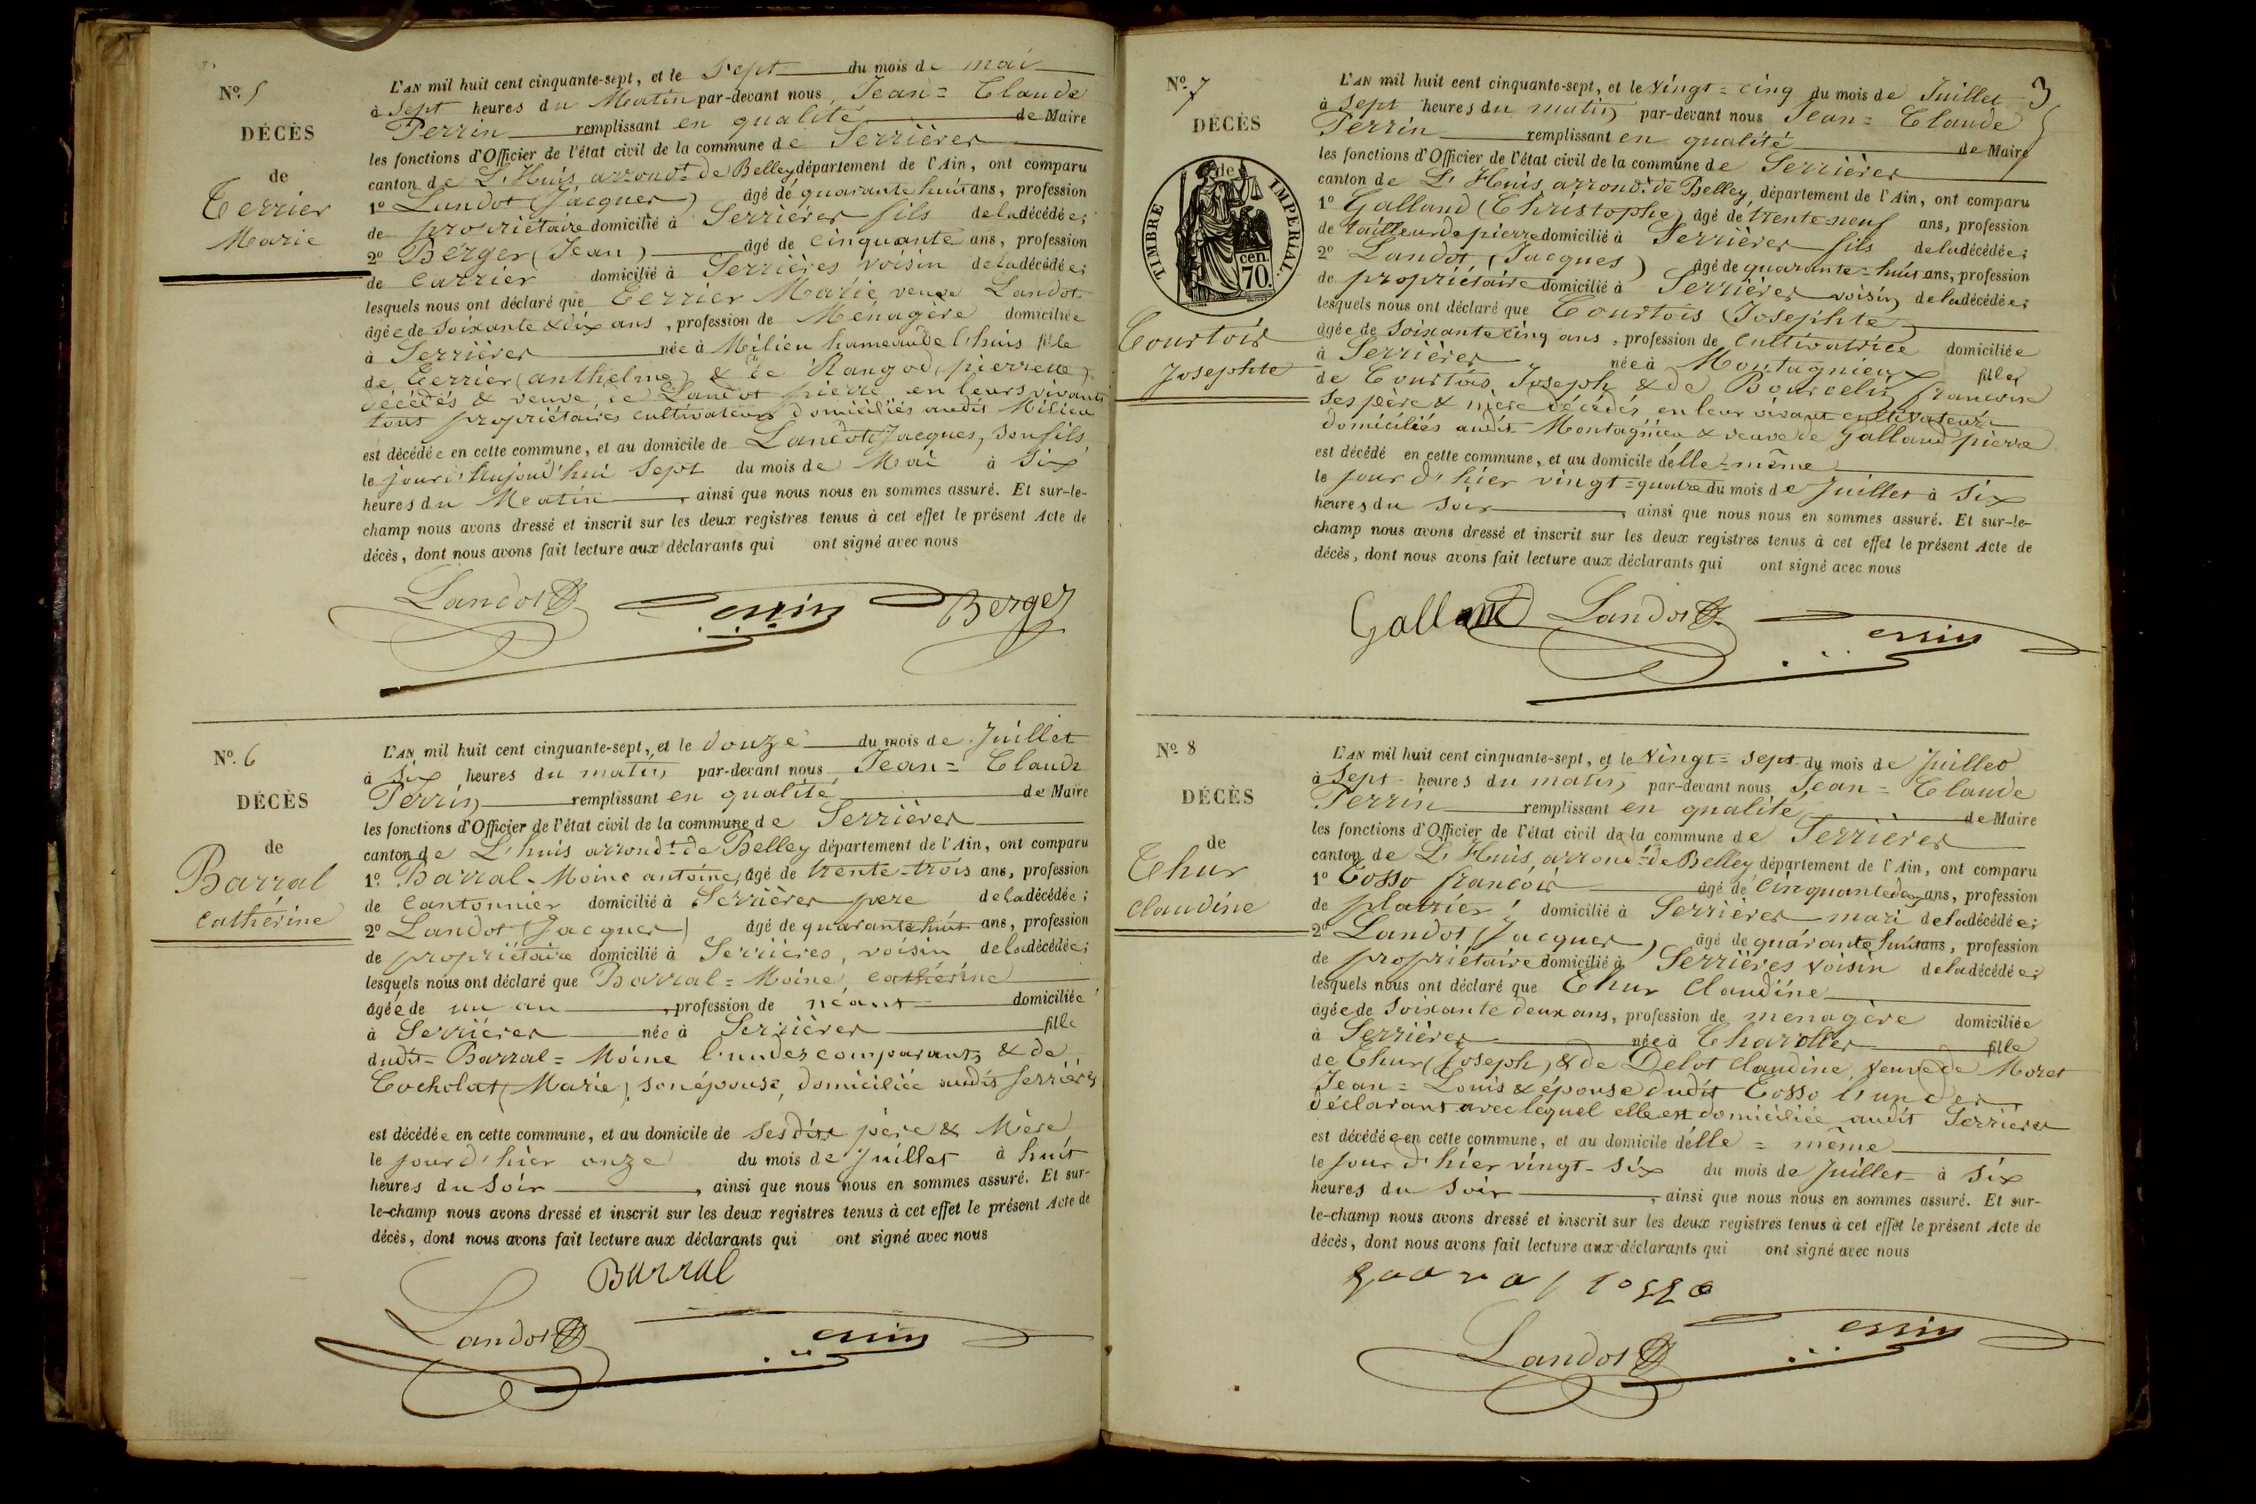 N.º 5
DÉCÈS
de
Terrier
Marie
L'AN mil huit cent cinquante-sept, et le Sept du mois de mai
à Sept heures du Matin par-devant nous Jean = Claude
Perrin remplissant en qualité de Maire
les fonctions d'Officier de l'état civil de la commune de Serrières
canton de L'Huis arrond.t de Belley département de l'Ain, ont comparu
1º Landot (Jacques) âgé de quarante huit ans, profession
de propriétaire domicilié à Serrières fils de la décédée;
2º Berger (Jean) âgé de cinquante ans, profession
de carrier domicilié à Serrières voisin de la décédée;
lesquels nous ont déclaré que Terrier Marie, veuve Landot
âgée de soixante & dix ans, profession de Menagère domiciliée
à Serrières née à Milieu hameau de l'huis fille
de Terrier (anthelme) & de Rangod (pierrette)
décédés & veuve de Landot pierre en leurs vivants
tous propriétaires cultivateurs domiciliés audit Milieu
est décédée en cette commune, et au domicile de Landot Jacques, son fils
le jour d'Aujourd'hui Sept du mois de Mai à Six
heures du Matin, ainsi que nous nous en sommes assuré. Et sur-le-
champ nous avons dressé et inscrit sur les deux registres tenus à cet effet le présent Acte de
décès, dont nous avons fait lecture aux déclarants qui ont signé avec nous
Landot Perrin Berger
N.º 6
DÉCÈS
de
Barral
Catherine
L'AN mil huit cent cinquante-sept, et le douze du mois de Juillet
à Six heures du matin par-devant nous Jean = Claude
Perrin remplissant en qualité de Maire
les fonctions d'Officier de l'état civil de la commune de Serrières
canton de L'huis arrond.t de Belley département de l'Ain, ont comparu
1º Barral-Moine antoine, âgé de trente-trois ans, profession
de Cantonnier domicilié à Serrières pere de la décédée;
2º Landot (Jacques) âgé de quarante huit ans, profession
de propriétaire domicilié à Serrières, voisin de la décédée;
lesquels nous ont déclaré que Barral = Moine, catherine
âgée de un an, profession de néant domiciliée
à Serrières née à Serrières fille
dudit Barral = Moine l'un des comparants & de
Cocholat (Marie), son épouse, domiciliée audit Serrières
est décédée en cette commune, et au domicile de Ses dits père & Mère
le jour d'hier onze du mois de Juillet à huit
heures du Soir, ainsi que nous nous en sommes assuré. Et sur-
le-champ nous avons dressé et inscrit sur les deux registres tenus à cet effet le présent Acte de
décès, dont nous avons fait lecture aux déclarants qui ont signé avec nous
Barral
Landot Perrin
3
N.º 7
DÉCÈS
de
TIMBRE IMPERIAL.
cen.
70.
Courtois
Josephte
L'AN mil huit cent cinquante-sept, et le Vingt = cinq du mois de Juillet
à Sept heures du matin par-devant nous Jean = Claude
Perrin remplissant en qualité de Maire
les fonctions d'Officier de l'état civil de la commune de Serrières
canton de L'Huis, arrond.t de Belley, département de l'Ain, ont comparu
1º Galland (Christophe) âgé de trente neuf ans, profession
de tailleur de pierre domicilié à Serrières fils de la décédée;
2º Landot (Jacques) âgé de quarante = huit ans, profession
de propriétaire domicilié à Serrières voisin de la décédée;
lesquels nous ont déclaré que Courtois (Josephte)
âgée de Soixante cinq ans, profession de cultivatrice domiciliée
à Serrières née à Montagnieux fille
de Courtois Joseph & de Bourcelin francoise
ses père & mère décédés, en leur vivant cultivateurs
domiciliés audit Montagnieu & veuve de Galland pierre
est décédé en cette commune, et au domicile d'élle = même
le jour d'hier vingt = quatre du mois de Juillet à Six
heures du Soir, ainsi que nous nous en sommes assuré. Et sur-le-
champ nous avons dressé et inscrit sur les deux registres tenus à cet effet le présent Acte de
décès, dont nous avons fait lecture aux déclarants qui ont signé avec nous
Galland Landot Perrin
N.º 8
DÉCÈS
de
Thur
Claudine
L'AN mil huit cent cinquante-sept, et le Vingt = sept du mois de Juillet
à Sept heures du matin par-devant nous Jean = Claude
Perrin remplissant en qualité de Maire
les fonctions d'Officier de l'état civil de la commune de Serrières
canton de L'Huis, arrond.t de Belley département de l'Ain, ont comparu
1º Tosso françois âgé de Cinquante deux ans, profession
de platrier domicilié à Serrières mari de la décédée;
2º Landot (Jacques) âgé de quarante huit ans, profession
de propriétaire domicilié à Serrières voisin de la décédée;
lesquels nous ont déclaré que Thur Claudine
âgée de Soixante deux ans, profession de menagère domiciliée
à Serrières née à Charolles fille
de Thur (Joseph) & de Delot Claudine, veuve de Moret
Jean = Louis & épouse dudit Tosso l'un des
déclarant avec lequel elle est domiciliée audit Serrières
est décédée en cette commune, et au domicile d'élle = même
le Jour d'hier vingt-six du mois de Juillet à Six
heures du Soir, ainsi que nous nous en sommes assuré. Et sur-
le-champ nous avons dressé et inscrit sur les deux registres tenus à cet effet le présent Acte de
décès, dont nous avons fait lecture aux déclarants qui ont signé avec nous
Landot Perrin